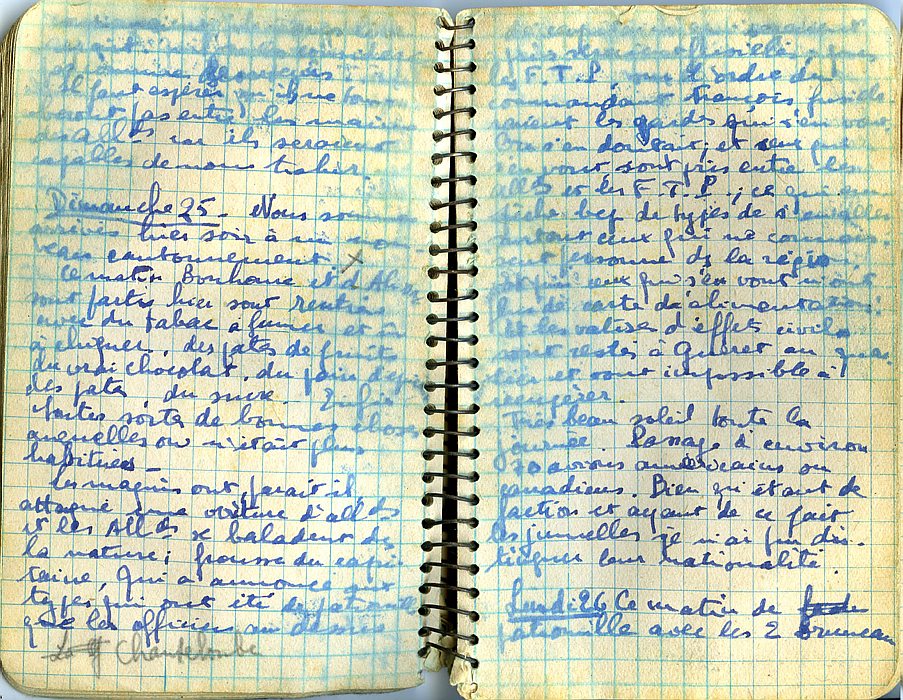 Il faut espérer qu'ils ne tom-
beront pas entre les mains
des Allds car ils seraient
capables de nous trahir.
Dimanche 25 - Nous sommes
arrivés hier soir à un nou-
veau cantonnement X
Ce matin Bonhome et
sont partis hier sont rentrés
avec du tabac à fumer et
à chiquer, des pâtes de fruits
du vrai chocolat, du pain
des pates, du sucre. Enfin
toutes sorte de bonnes choses
auquelles on n'était plus
habitués -
Les maquis ont, parait il,
attaqué une voiture d'allds
et les Allds se baladent ds
la nature; frousse du capi-
taine, qui a annoncé aux
types qui ont été de patrouille
que les officiers au dessus
Chantelombe
les F.T.P., sur l'ordre du
commandant François fusille-
raient les gardes qui s'en vont.
On s'en doutait; et ceux qui
s'en vont sont pris entre les
allds et les F.T.P.; ce qui em-
pêche bcp de types de s'en aller
surtout ceux qui ne connais-
sent personne ds la région,
ceux qui s'en vont n'ont
pas de carte d'alimentation!
Et les valises d'effets civils
sont restés à Guéret au quar-
tier et sont impossible à
récupérer.
Très beau soleil toute la
journée. Passage d'environ
70 avions américains ou
canadiens. Bien qu'étant de
faction et ayant de ce fait
les jumelles je n'ai pu dis-
tinguer leur nationalité.
Lundi 26 Ce matin de
patrouille avec les 2 Bruneau